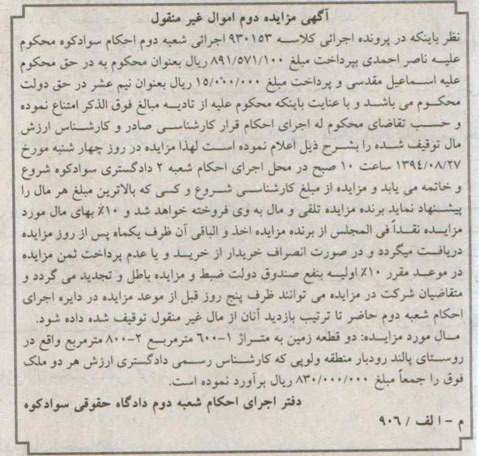 آگهی مزایده دوم اموال غیر منقول
نظر باینکه در پرونده اجرائی کلاسه ۹۳۰۱۵۳ اجرائی شعبه دوم احکام سوادکوه محکوم
علیه ناصر احمدی بپرداخت مبلغ ۸۹۱/۵۷۱/۱۰۰ ریال بعنوان محکوم به در حق محکوم
علیه اسماعیل مقدسی و پرداخت مبلغ ۱۵/۰۰۰/۰۰۰ ریال بعنوان نیم عشر در حق دولت
محکوم می باشد و با عنایت باینکه محکوم علیه از تادیه مبالغ فوق الذکر امتناع نموده
و حسب تقاضای محکوم له اجرای احکام قرار کارشناسی صادر و کارشناس ارزش
مال توقیف شده را بشرح ذیل اعلام نموده است لهذا مزایده در روز چهار شنبه مورخ
۱۳۹۴/۰۸/۲۷ ساعت ۱۰ صبح در محل اجرای احکام شعبه ۲ دادگستری سوادکوه شروع
و خاتمه می یابد و مزایده از مبلغ کارشناسی شروع و کسی که بالاترین مبلغ هر مال را
پیشنهاد نماید برنده مزایده تلقی و مال به وی فروخته خواهد شد و ۱۰٪ بهای مال مورد
مزایده نقداً فی المجلس از برنده مزایده اخذ و الباقی آن ظرف یکماه پس از روز مزایده
دریافت میگردد و در صورت انصراف خریدار از خرید و یا عدم پرداخت ثمن مزایده
در موعد مقرر ۱۰٪ اولیه بنفع صندوق دولت ضبط و مزایده باطل و تجدید می گردد و
متقاضیان شرکت در مزایده می توانند ظرف پنج روز قبل از موعد مزایده در دایره اجرای
احکام شعبه دوم حاضر تا ترتیب بازدید آنان از مال غیر منقول توقیف شده داده شود.
مال مورد مزایده: دو قطعه زمین به متراژ ۱-۶۰۰ مترمربع ۲-۸۰۰ مترمربع واقع در
روستای پالند رودبار منطقه ولوپی که کارشناس رسمی دادگستری ارزش هر دو ملک
فوق را جمعاً مبلغ ۸۳۰/۰۰۰/۰۰۰ ریال برآورد نموده است.
دفتر اجرای احکام شعبه دوم دادگاه حقوقی سوادکوه
م - الف / ۹۰۶